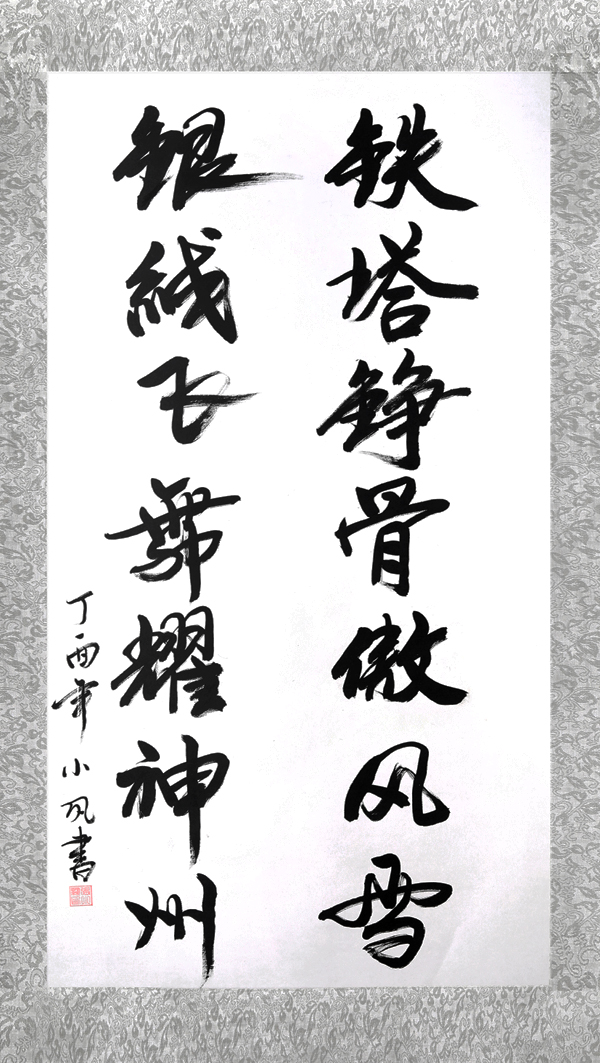 铁塔铮骨傲风雪
銀綫飞舞耀神州
丁酉年 小风書